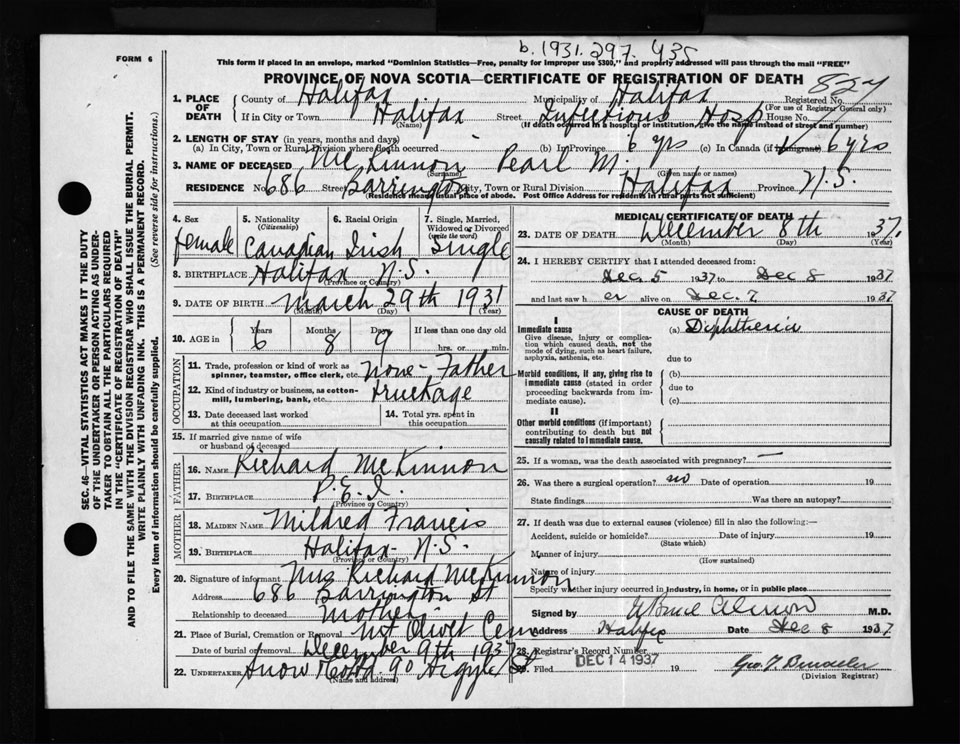 b. 1931. 297. 435
FORM 6
This form if placed in an envelope, marked "Dominion Statistics—Free, penalty for improper use $300," and properly addressed will pass through the mail "FREE"
PROVINCE OF NOVA SCOTIA—CERTIFICATE OF REGISTRATION OF DEATH
1. PLACE OF DEATH County of Halifax Municipality of Halifax Registered No. 824
(For use of Registrar General only)
If in City or Town Halifax Street Infectious Hosp House No.
(Name) (If death occurred in a hospital or institution, give the name instead of street and number)
2. LENGTH OF STAY (in years, months and days)
(a) In City, Town or Rural Division where death occurred (b) In Province 6 yrs (c) In Canada (if immigrant) 6 yrs
3. NAME OF DECEASED McKinnon Pearl M.
(Surname) (Given name or names)
RESIDENCE No. 686 Street Barrington City, Town or Rural Division Halifax Province N.S.
(Residence means usual place of abode. Post Office Address for residents in rural parts not sufficient)
SEC. 46—VITAL STATISTICS ACT MAKES IT THE DUTY
OF THE UNDERTAKER OR PERSON ACTING AS UNDER-
TAKER TO OBTAIN ALL THE PARTICULARS REQUIRED
IN THE "CERTIFICATE OF REGISTRATION OF DEATH"
AND TO FILE THE SAME WITH THE DIVISION REGISTRAR WHO SHALL ISSUE THE BURIAL PERMIT.
WRITE PLAINLY WITH UNFADING INK. THIS IS A PERMANENT RECORD.
Every item of information should be carefully supplied. (See reverse side for instructions.)
4. Sex 5. Nationality (Citizenship) 6. Racial Origin 7. Single, Married, Widowed or Divorced (write the word)
female Canadian Irish Single
8. BIRTHPLACE Halifax N.S.
(Province or Country)
9. DATE OF BIRTH March 29th 1931
(Month) (Day) (Year)
10. AGE in Years 6 Months 8 Days 9 If less than one day old
hrs. or min.
OCCUPATION
11. Trade, profession or kind of work as spinner, teamster, office clerk, etc. none - Father
12. Kind of industry or business, as cotton-mill, lumbering, bank, etc. truckage
13. Date deceased last worked at this occupation
14. Total yrs. spent in this occupation
15. If married give name of wife or husband of deceased
FATHER
16. NAME Richard McKinnon
17. BIRTHPLACE P.E.I.
(Province or Country)
MOTHER
18. MAIDEN NAME Mildred Francis
19. BIRTHPLACE Halifax - N.S.
(Province or Country)
20. Signature of informant Mrs Richard McKinnon
Address 686 Barrington St
Relationship to deceased mother
21. Place of Burial, Cremation or Removal Mt Olivet Cem
Date of burial or removal December 9th 1937
22. UNDERTAKER Snow & Co Ltd. 90 Argyle St
(Name and address)
MEDICAL CERTIFICATE OF DEATH
23. DATE OF DEATH December 8th 1937.
(Month) (Day) (Year)
24. I HEREBY CERTIFY that I attended deceased from:
Dec 5 1937 to Dec 8 1937
and last saw h er alive on Dec. 7 1937
CAUSE OF DEATH
I
Immediate cause (a) Diphtheria
Give disease, injury or complication which caused death, not the mode of dying, such as heart failure, asphyxia, asthenia, etc.
due to
Morbid conditions, if any, giving rise to immediate cause (stated in order proceeding backwards from immediate cause). (b)
due to
(c)
II
Other morbid conditions (if important) contributing to death but not causally related to immediate cause.
25. If a woman, was the death associated with pregnancy? —
26. Was there a surgical operation? no Date of operation 19
State findings Was there an autopsy?
27. If death was due to external causes (violence) fill in also the following:—
Accident, suicide or homicide? Date of injury 19
(State which)
Manner of injury
(How sustained)
Nature of injury
Specify whether injury occurred in industry, in home, or in public place
Signed by M.D.
Address Halifax Date Dec 8 1937
28. Registrar's Record Number
Filed DEC 14 1937 19
(Division Registrar)